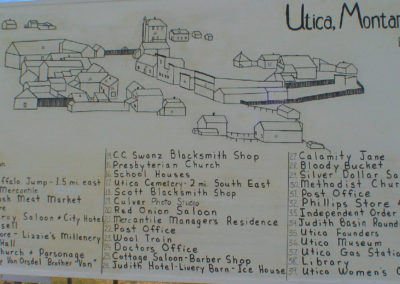 Utica, Montan
Buffalo Jump - 1.5 mi. east
Mercantile
Meat Market
Saloon & City Hotel
Lizzie's Millenery
Hall
Church & Parsonage
Van Orsdel Brother "Van"
14. C.C. Swanz Blacksmith Shop
15. Presbyterian Church
16. School Houses
17. Utica Cemetery - 2 mi. South East
18. Scott Blacksmith Shop
19. Culver Photo Studio
20. Red Onion Saloon
21. Mercantile Managers Residence
22. Post Office
23. Wool Train
24. Doctors Office
25. Cottage Saloon - Barber Shop
26. Judith Hotel - Livery Barn - Ice House
27. Calamity Jane
28. Bloody Bucket
29. Silver Dollar Sa
30. Methodist Chur
31. Post Office
32. Phillips Store
33. Independent Order
34. Judith Basin Round
35. Utica Founders
36. Utica Museum
37. Utica Gas Stati
38. Library
39. Utica Women's C